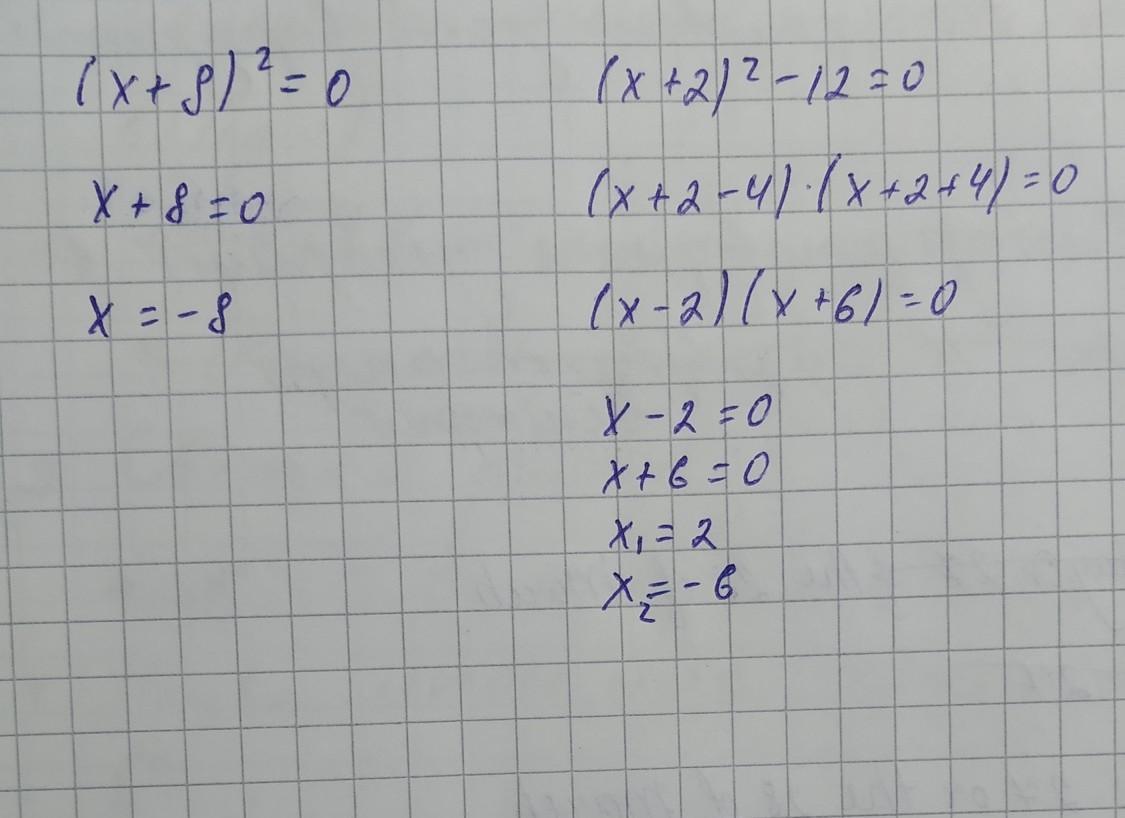 (x+8)² = 0
x + 8 = 0
x = -8
(x+2)² - 12 = 0
(x+2-4)·(x+2+4) = 0
(x-2)(x+6) = 0
x - 2 = 0
x + 6 = 0
x₁ = 2
x₂ = -6